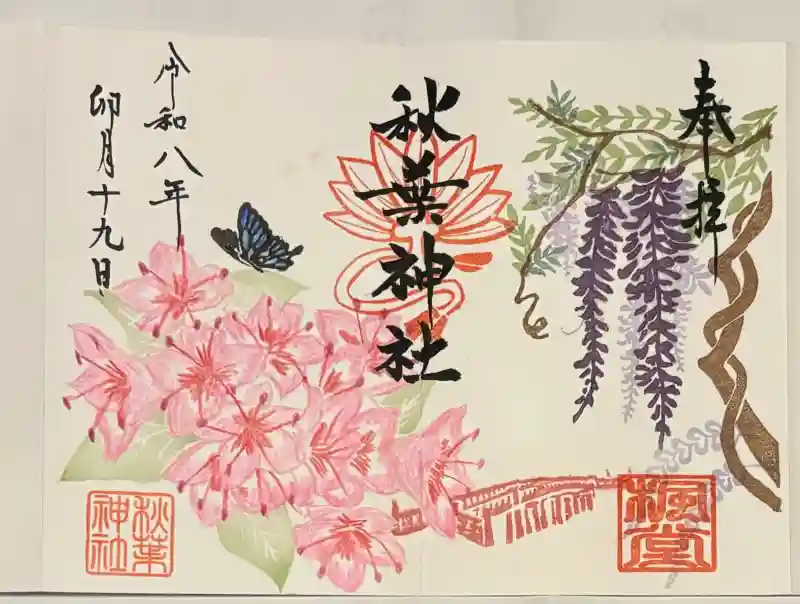 奉拝
秋葉神社
令和八年
卯月十九日
秋葉
神社
楓堂